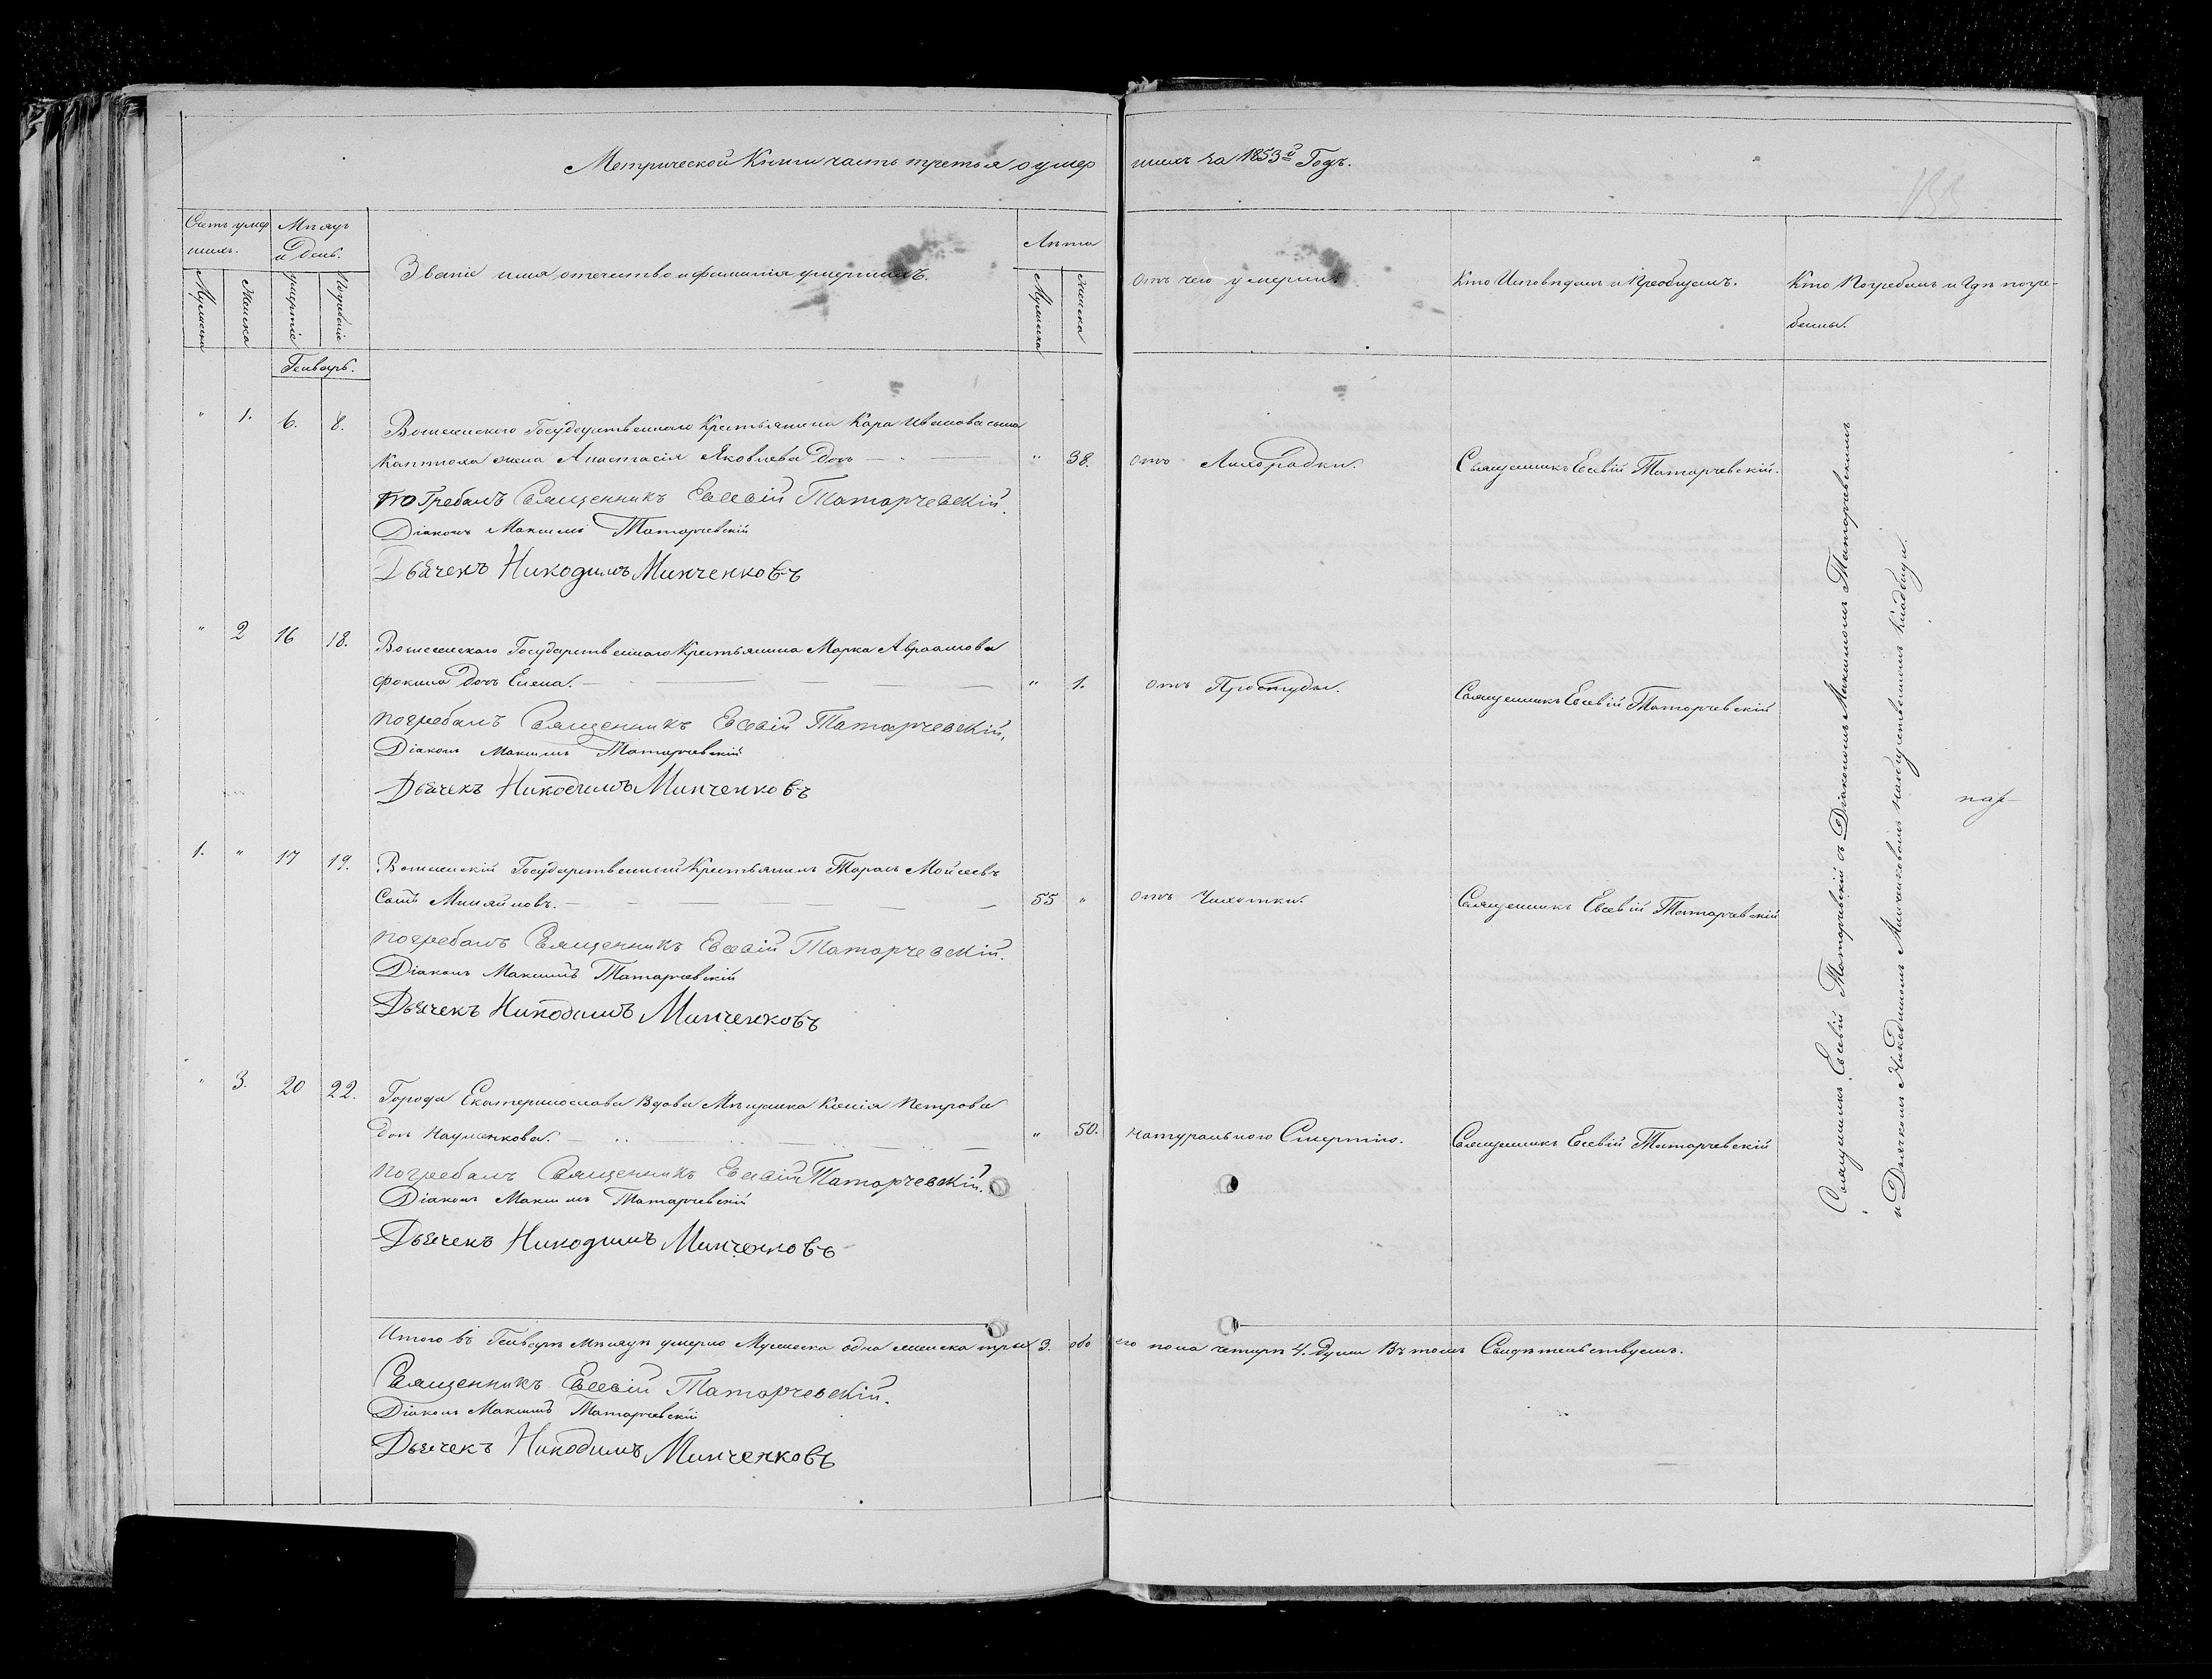 Метрической Книги часть третья о умер
шихъ за 1853й Годъ.
Счетъ умер
шихъ.
Мѣсяцъ
и День.
Званіе имя отечество и фамилія умершихъ.
Лѣта
Отъ чего умерли.
Кто Исповѣдалъ и Пріобщалъ.
Кто Погребалъ и Гдѣ погре-
бены.
Мужеска
Женска
умертіе
Погребеніе
Мужеска
женска
Генварь.
" 1. 6. 8. Государственнаго Крестьянина Кара Иванова сына
Каптюха жена Анастасія Яковлева Дочь " 38. отъ Лихорадки. Священникъ Евсевій Татарчевскій.
погребалъ Священникъ Евсевій Татарчевскій.
Діаконъ Максимъ Татарчевскій
Дьячекъ Никодимъ Минченковъ
" 2 16 18. Государственнаго Крестьянина Марка Авраамова
Фокина Дочь Елена. " 1. отъ Простуды. Священникъ Евсевій Татарчевскій
погребалъ Священникъ Евсевій Татарчевскій.
Діаконъ Максимъ Татарчевскій
Дьячекъ Никодимъ Минченковъ
1. " 17 19. Государственный Крестьянинъ Тарасъ Мойсеевъ
Сынъ Миняйловъ. 55 " отъ Чихотки. Священникъ Евсевій Татарчевскій
погребалъ Священникъ Евсевій Татарчевскій.
Діаконъ Максимъ Татарчевскій
Дьячекъ Никодимъ Минченковъ
" 3. 20 22. Города Екатеринослава Вдова Мѣщанка Ксенія Петрова
Дочь Науменкова. " 50. натуральною Смертію. Священникъ Евсевій Татарчевскій
погребалъ Священникъ Евсевій Татарчевскій.
Діаконъ Максимъ Татарчевскій
Дьячекъ Никодимъ Минченковъ
Священникъ Евсевій Татарчевскій съ Діакономъ Максимомъ Татарчевскимъ
и Дьячкомъ Никодимомъ Минченковымъ на кладбищи.
Итого въ Генварѣ Мѣсяцѣ умерло Мужеска одна женска три 3. обо
его пола четыри 4. Души Въ томъ Свидѣтельствуемъ.
Священникъ Евсевій Татарчевскій.
Діаконъ Максимъ Татарчевскій
Дьячекъ Никодимъ Минченковъ